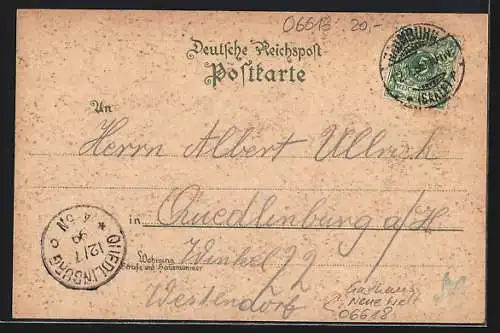 06618 20.-
Deutsche Reichspost
Postkarte
NAUMBURG
* (SAALE) *
An
Herrn Albert Ullrich
in Quedlinburg a/H
Wohnung
Straße und Hausnummer
Winkel 22
Westendorf
QUEDLINBURG
12/7
99
4-5N
Gasthaus
Neue Welt
06618